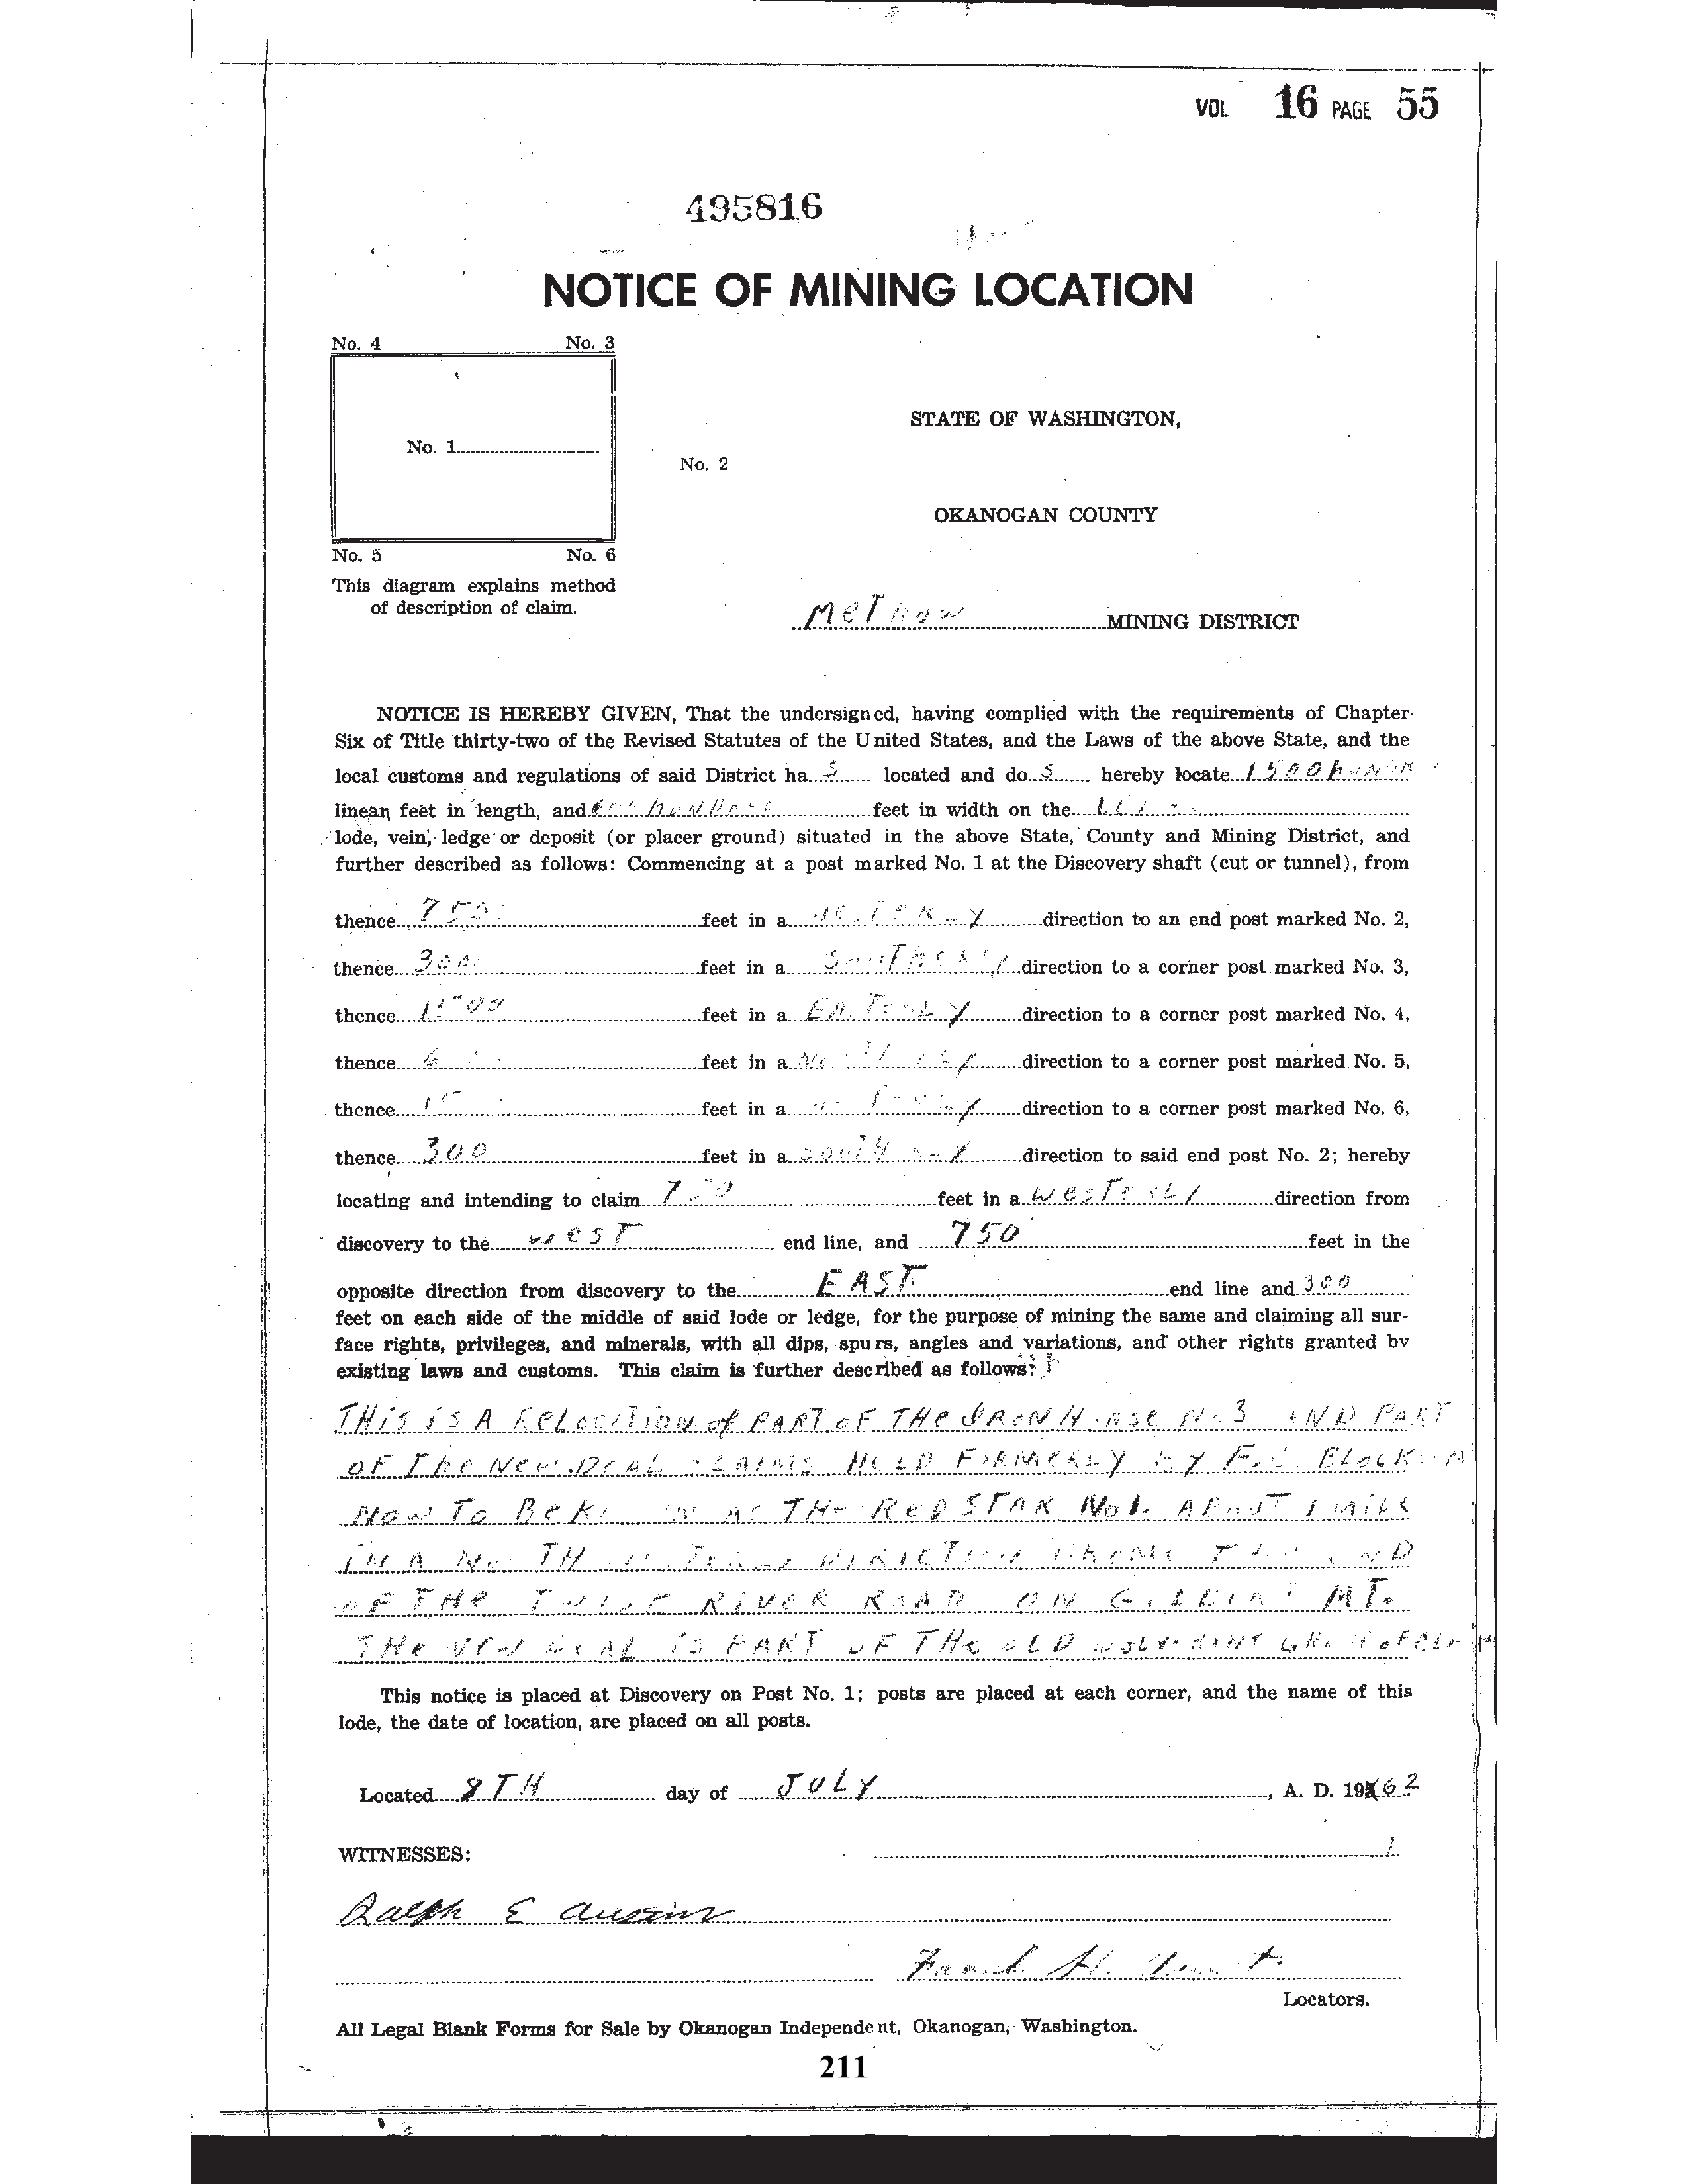 VOL 16 PAGE 55
495816
NOTICE OF MINING LOCATION
No. 4 No. 3
No. 1
No. 2
No. 5 No. 6
This diagram explains method
of description of claim.
STATE OF WASHINGTON,
OKANOGAN COUNTY
MeThow MINING DISTRICT
NOTICE IS HEREBY GIVEN, That the undersigned, having complied with the requirements of Chapter
Six of Title thirty-two of the Revised Statutes of the United States, and the Laws of the above State, and the
local customs and regulations of said District ha S located and do S hereby locate 1500
linean feet in length, and feet in width on the
lode, vein, ledge or deposit (or placer ground) situated in the above State, County and Mining District, and
further described as follows: Commencing at a post marked No. 1 at the Discovery shaft (cut or tunnel), from
thence 750 feet in a WesTeRLY direction to an end post marked No. 2,
thence 300 feet in a SouTheRLy direction to a corner post marked No. 3,
thence 1500 feet in a EasTeRLy direction to a corner post marked No. 4,
thence feet in a direction to a corner post marked No. 5,
thence feet in a direction to a corner post marked No. 6,
thence 300 feet in a direction to said end post No. 2; hereby
locating and intending to claim 750 feet in a WesTeRLy direction from
discovery to the wesT end line, and 750 feet in the
opposite direction from discovery to the EAST end line and 300
feet on each side of the middle of said lode or ledge, for the purpose of mining the same and claiming all sur-
face rights, privileges, and minerals, with all dips, spurs, angles and variations, and other rights granted by
existing laws and customs. This claim is further described as follows:
THiS iS A ReLocaTion of PART oF THe IRON HoRse No 3 AND PART
oF The New DeAL CLAIMS HeLD FoRMeRLY By
Now To Be AS THe ReD STAR No 1. ABouT 1 MiLe
IN A DiRecTion
oF THe TWiSP RiVeR RoAD ON MT.
THe NeW DeAL iS PART oF THe oLD
This notice is placed at Discovery on Post No. 1; posts are placed at each corner, and the name of this
lode, the date of location, are placed on all posts.
Located 8TH day of JULY, A. D. 1962
WITNESSES:
Ralph E Austin
Frank H.
Locators.
All Legal Blank Forms for Sale by Okanogan Independent, Okanogan, Washington.
211